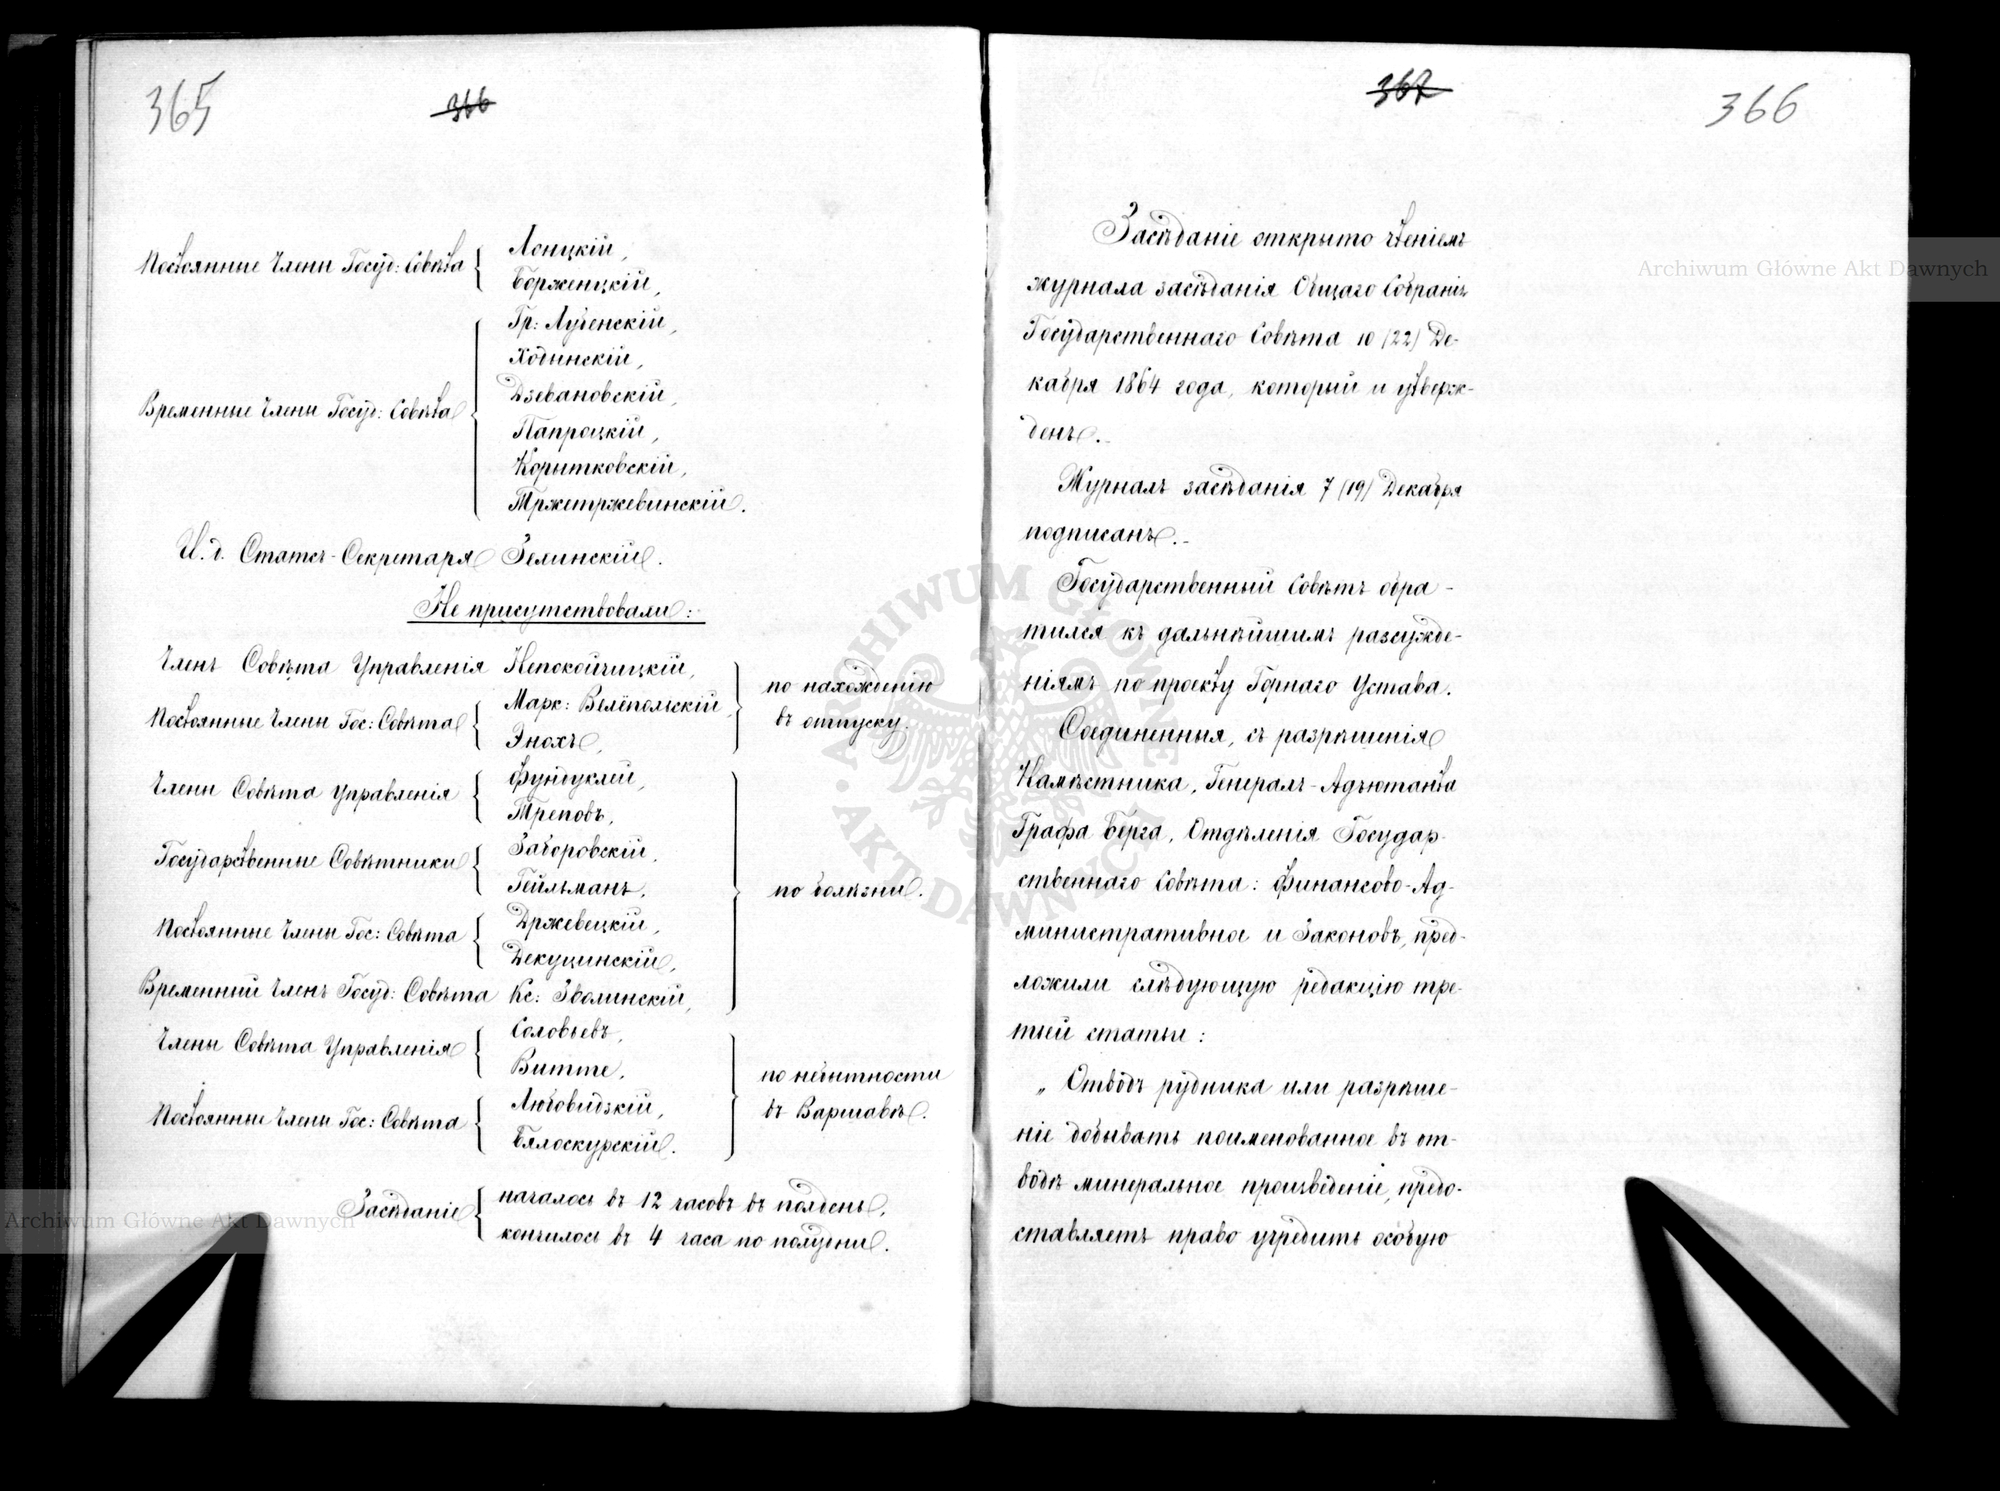 365
366
Постоянные Члены Госуд: Совѣта
Лонцкій,
Борженцкій,
Временные Члены Госуд: Совѣта
Гр: Лубенскій,
Ходынскій,
Дзевановскій,
Папроцкій,
Корытковскій,
Тржетржевинскій.
И. д. Статсъ-Секретаря Зелинскій.
Не присутствовали:
Членъ Совѣта Управленія Непокойчицкій,
Постоянные Члены Гос: Совѣта
Марк: Велёпольскій,
Энохъ,
по нахожденію
въ отпуску.
Члены Совѣта Управленія
Фундуклей,
Треповъ,
Государственные Совѣтники
Заборовскій,
Гейльманъ,
Постоянные Члены Гос: Совѣта
Држевецкій,
Декуцинскій,
Временный Членъ Госуд: Совѣта Кс: Зволинскій,
по болѣзни.
Члены Совѣта Управленія
Соловьевъ,
Витте,
Постоянные Члены Гос: Совѣта
Любовидзкій,
Бялоскурскій.
по небытности
въ Варшавѣ.
Засѣданіе
началось въ 12 часовъ въ полдень,
кончилось въ 4 часа по полудни.
367
366
Засѣданіе открыто чтеніемъ
журнала засѣданія Общаго Собранія
Государственнаго Совѣта 10 (22) Де-
кабря 1864 года, который и утверж-
денъ.
Журналъ засѣданія 7 (19) Декабря
подписанъ.
Государственный Совѣтъ обра-
тился къ дальнѣйшимъ разсужде-
ніямъ по проекту Горнаго Устава.
Соединенныя, съ разрѣшенія
Намѣстника, Генералъ-Адъютанта
Графа Берга, Отдѣленія Государ-
ственнаго Совѣта: Финансово-Ад-
министративное и Законовъ, пред-
ложили слѣдующую редакцію тре-
тьей статьи:
„Отводъ рудника или разрѣше-
ніе добывать поименованное въ от-
водѣ минеральное произведеніе, предо-
ставляетъ право учредить особую
Archiwum Główne Akt Dawnych
Archiwum Główne Akt Dawnych
ARCHIWUM GŁÓWNE AKT DAWNYCH